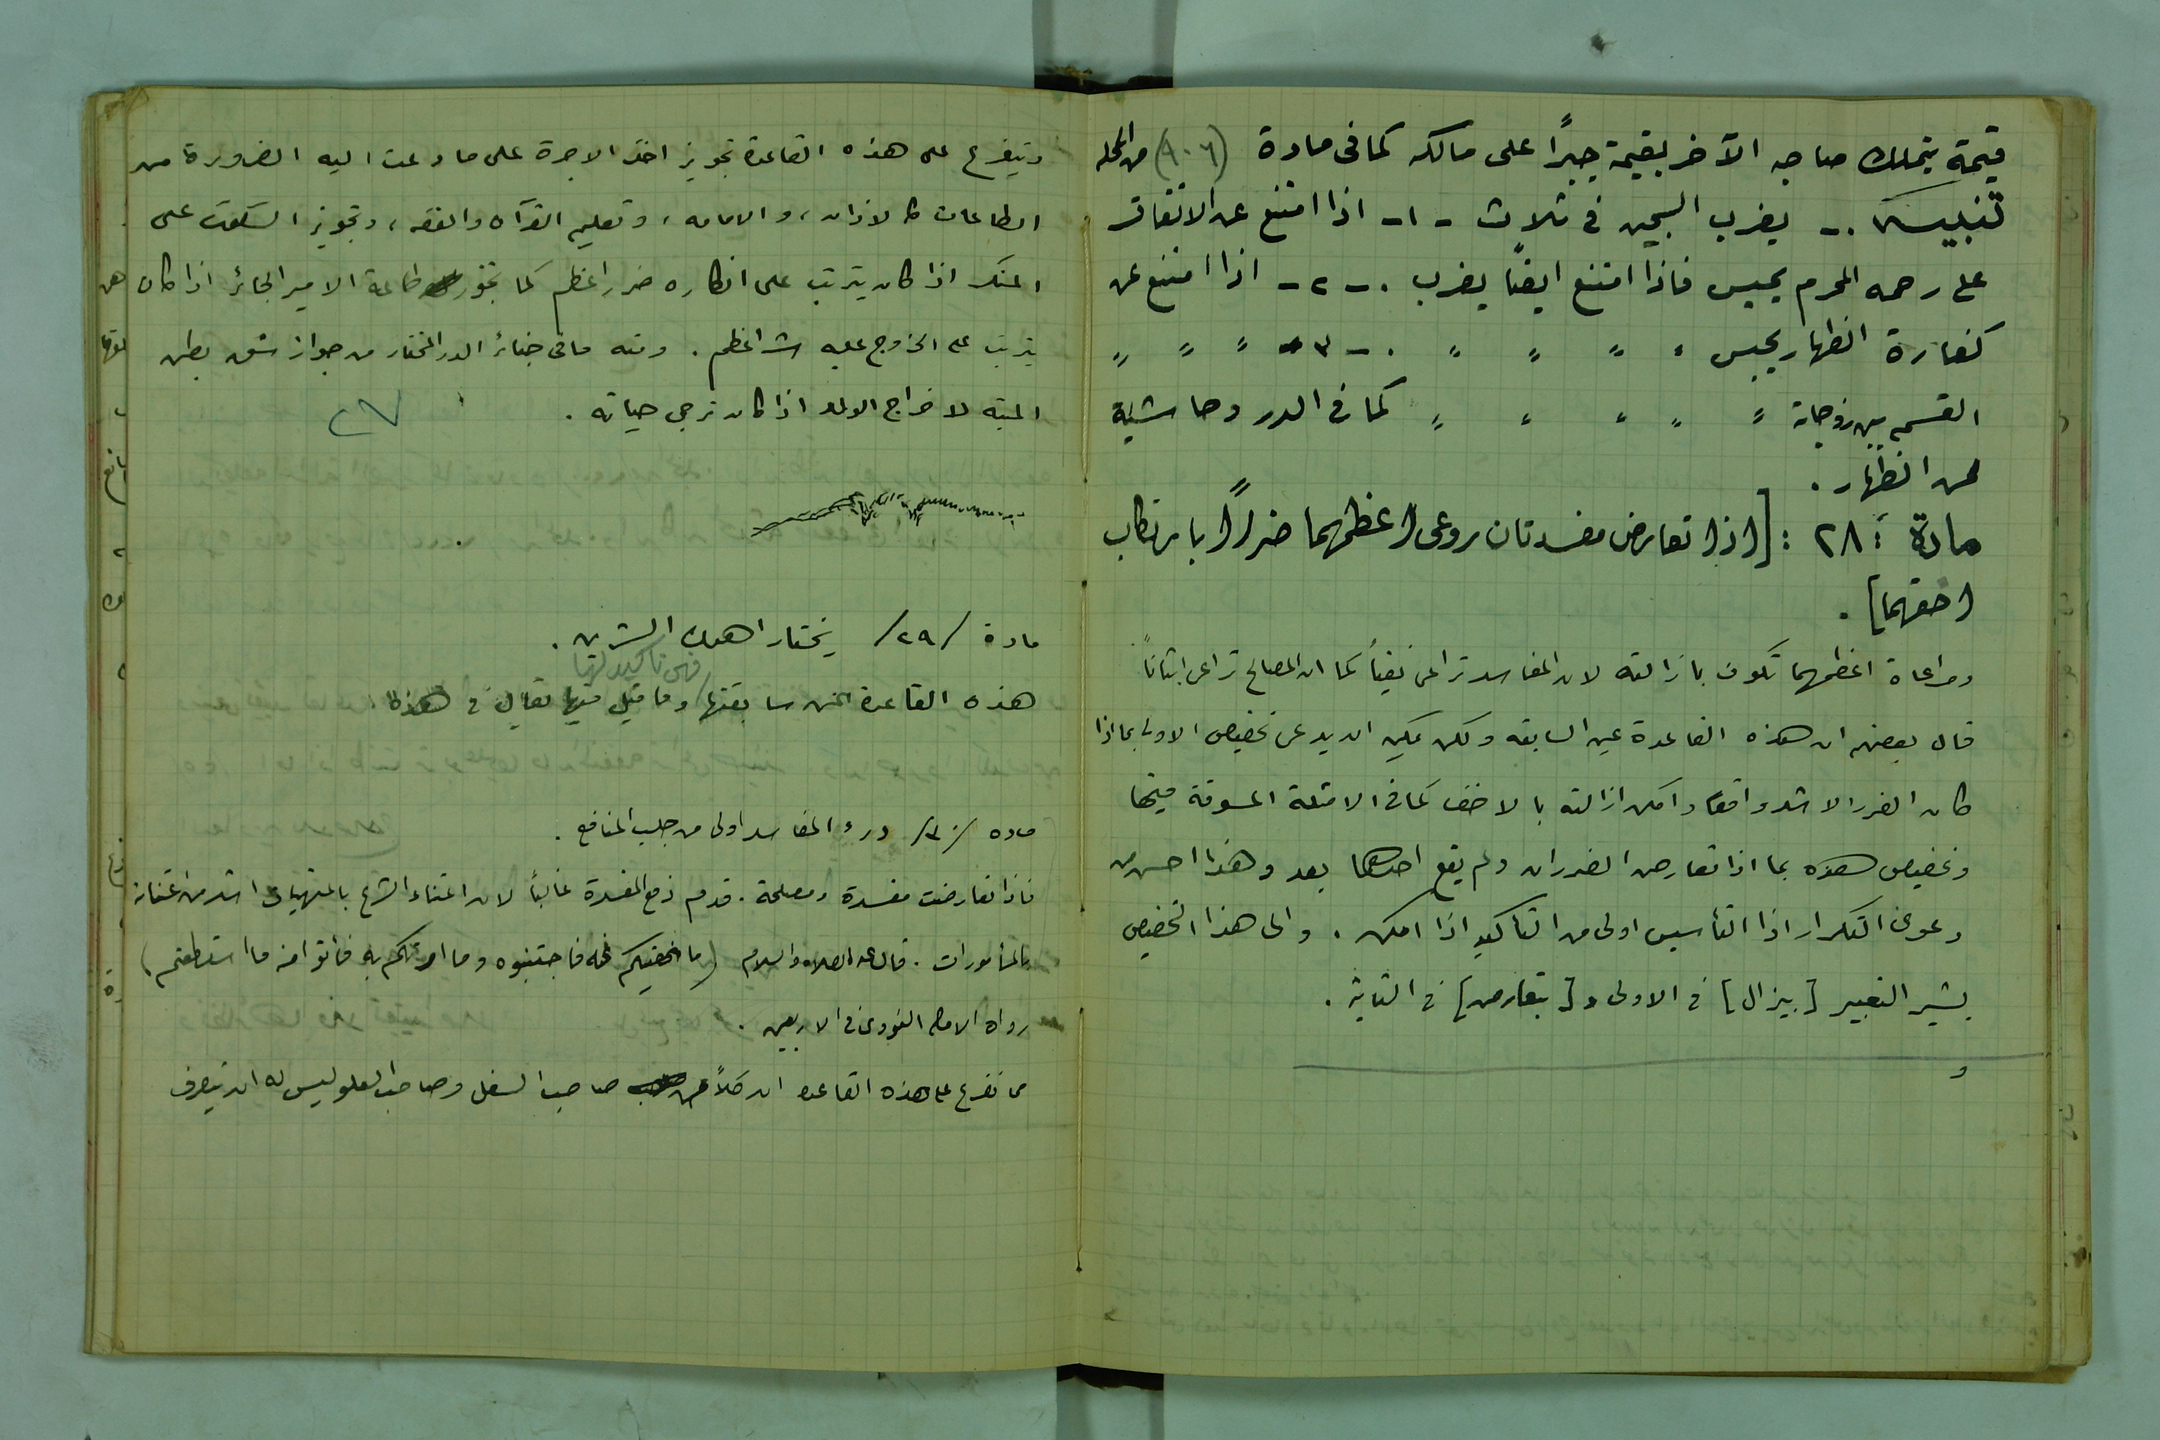 قيمة يتملك صاحبه الآخر بقيمة جبرًا على مالكه كما فى مادة (٩٠٦) من المجله
تنبيه .- يضرب السجين فى ثلاث -١- اذا امتنع عن الانفاق
على رحمه المحرم يحبس فاذا امتنع ايضًا يضرب .-٢- اذا امتنع عن
كفارة الظهار يحبس " " " " .-٣- " " "
القسم بين زوجاته " " " " " كما فى الدرر وحاشية
من الظهار .
مادة : ٢٨ : [اذا تعارض مفسدتان روعى اعظمهما ضررًا بارتكاب
اخفهما] .
ومراعاة اعظمهما تكون بازالته لان المفاسد تراعى نفيًا كما ان المصالح تراعى اثباتًا
قال بعضهم ان هذه القاعدة عين السابقه ولكن يمكن ان يدعى تخصيص الاولى بما اذا
كان الضرر الاشد واقعًا وامكن ازالته بالاخف كما فى الامثلة المسوقة فيها
وتخصيص هذه بما اذا تعارض الضرران ولم يقع احدهما بعد وهذا احسن من
دعوى التكرار اذا التأسيس اولى من التأكيد اذا امكن . والى هذا التخصيص
يشير التعبير [بيزال] فى الاولى و [بتعارض] فى الثانية .
و
ويتفرع على هذه القاعدة تجويز اخذ الاجرة على ما دعت اليه الضرورة من
الطاعات كالاذان ، والامامه ، وتعليم القرآن والفقه ، وتجويز السكوت على
المنكر اذا كان يترتب على انكاره ضرر اعظم كما تجوز طاعة الامير الجائر اذا كان
يترتب على الخروج عليه شر اعظم . ومنه ما فى جنائز الدر المختار من جواز شق بطن
الميته لاخراج الولد اذا كان ترجى حياته .
٢٧
مادة /٢٩/ يختار اهون الشرين .
فهى تأكيد لها
هذه القاعدة عين سابقتها وما قيل فيها يقال فى هذه
ماده /٣٠/ درء المفاسد اولى من جلب المنافع .
فاذا تعارضت مفسدة ومصلحة . قدم دفع المفسدة غالبًا لان اعتناء الشرع بالمنهيات اشد من اعتنائه
بالمأمورات . قال عليه الصلاه والسلام (ما نهيتكم عنه فاجتنبوه وما امرتكم به فأتوا منه ما استطعتم)
رواه الامام النووى فى الاربعين .
مما تفرع على هذه القاعده ان كلاً من صاحب السفل وصاحب العلو ليس له ان يتصرف